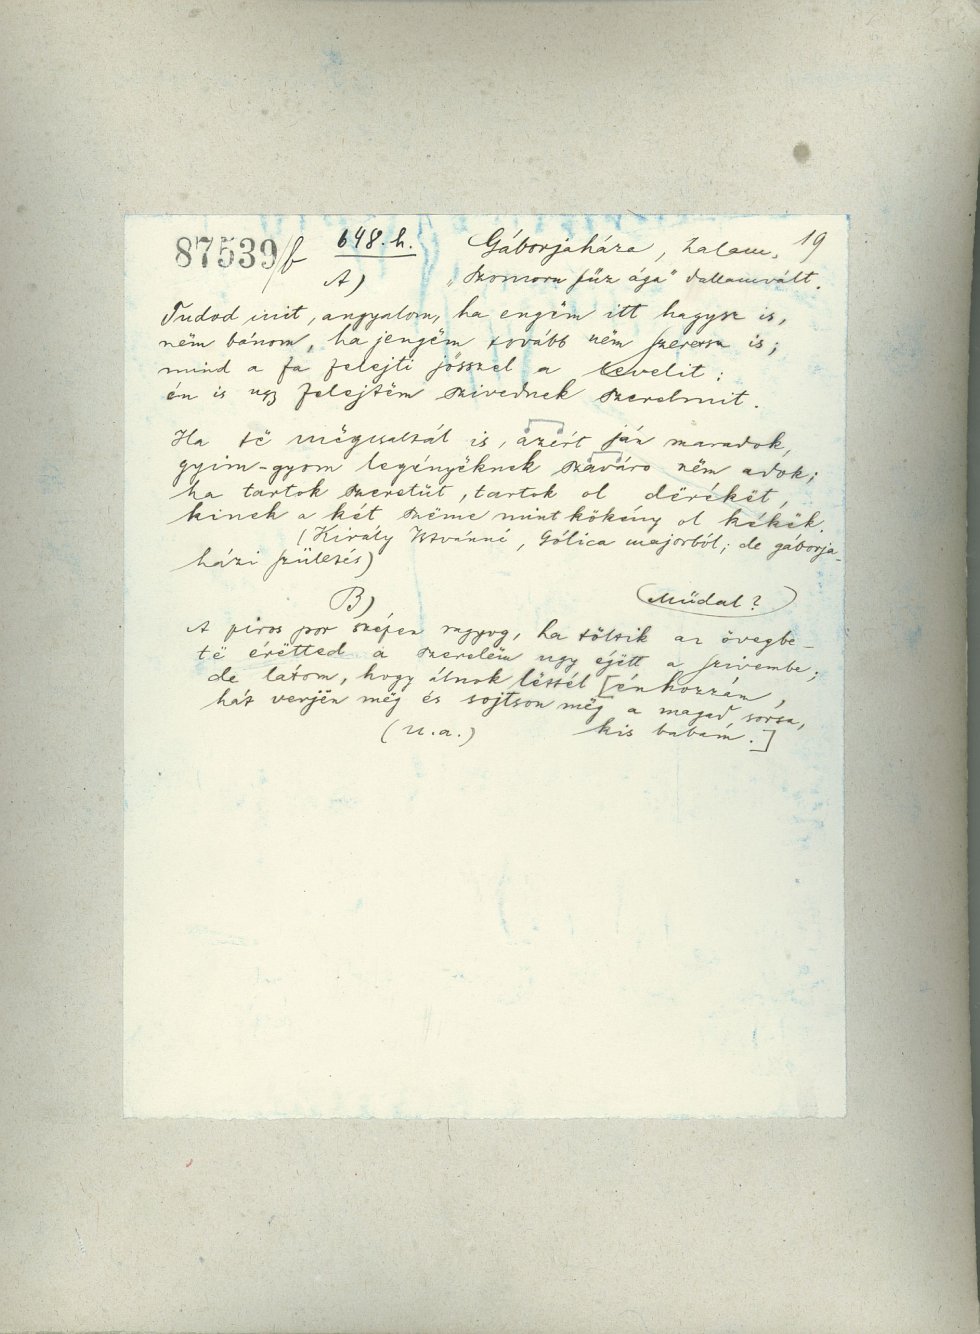 87539/b 648. h. Gáborjaháza, Zalam. 19
A) „Szomoru fűz ága" dallamvált.
Tudod mit, angyalom, ha engëm itt hagysz is,
nëm bánom, ha jengëm tovább nëm szeretsz is;
mind a fa felejti jősszel a levelit:
én is ugy felejtëm szivednek szerelmit.
Ha të mëgcsaltál is, azért ján maradok,
gyim-gyom legényëknek szaváro nëm adok;
ha tartok szeretüt, tartok ol dërékët,
kinek a két szëme mint kökény ol kékëk.
(Király Istvánné, Gólica majorból; de gáborja-
házi születés)
B) Müdal?
A piros por szépen ragyog, ha töltik az üvegbe-
të érëtted a szerelëm ugy éjëtt a szivembe;
de látom, hogy álnok lëttél [énhozzán,
hát verjën mëg és sojtson mëg a magad sorsa,
(u.a.) kis babám.]